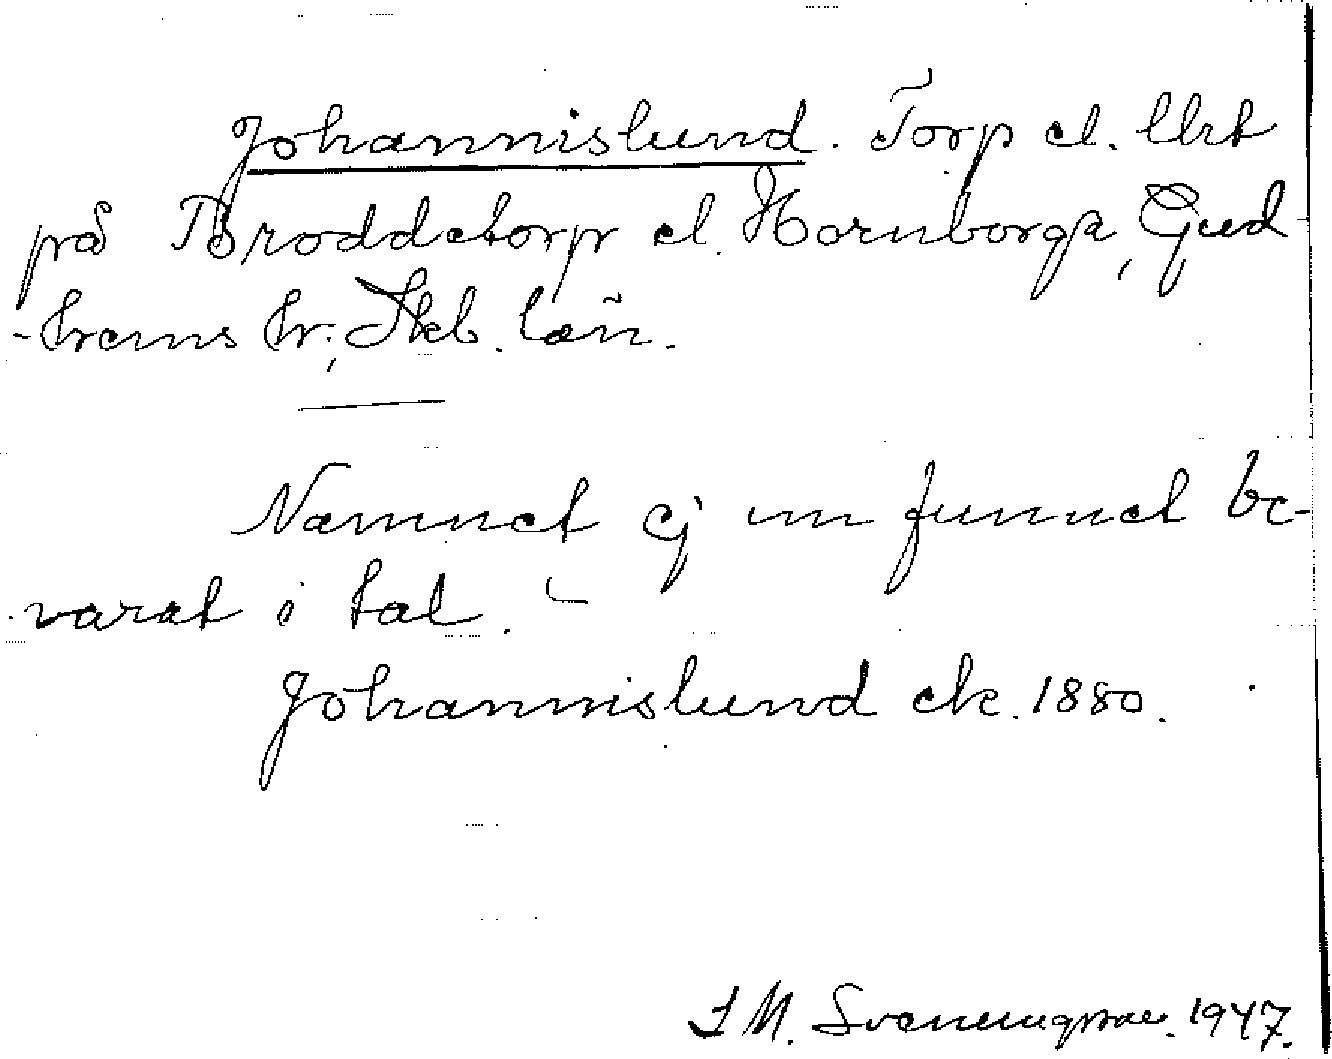 Johannislund. Torp el. lht
på Broddetorp el. Hornborga, Gud
-hems hr; Skb. län.
Namnet ej um funnet be-
varat i tal. -
Johannislund ek. 1880.
I M. 1947.